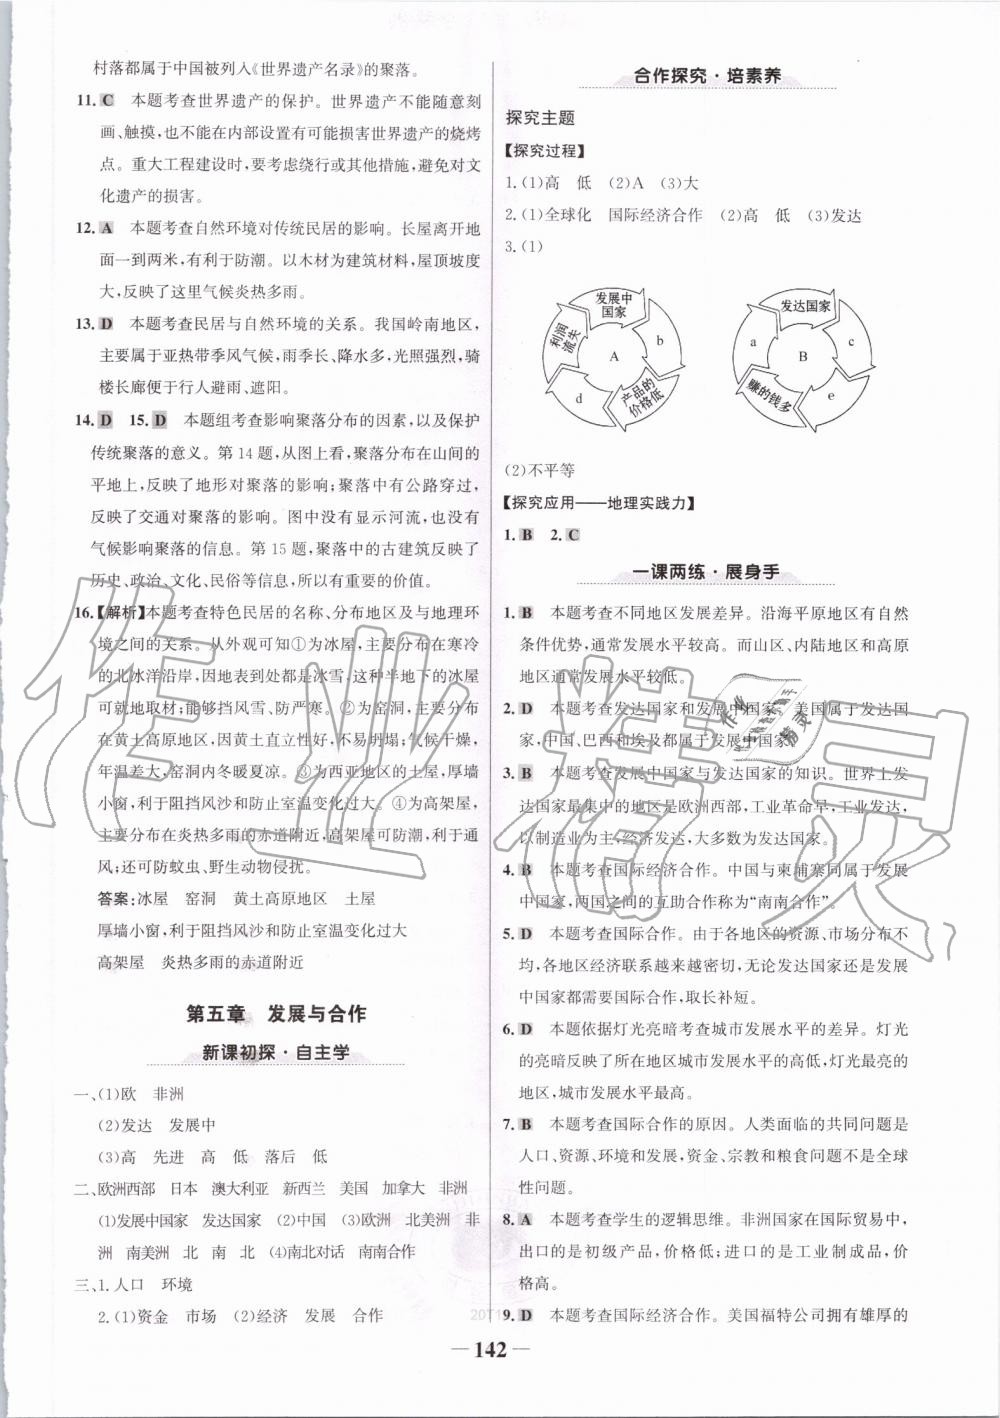 村落都属于中国被列入《世界遗产名录》的聚落。
11. C 本题考查世界遗产的保护。世界遗产不能随意刻
画、触摸,也不能在内部设置有可能损害世界遗产的烧烤
点。重大工程建设时,要考虑绕行或其他措施,避免对文
化遗产的损害。
12. A 本题考查自然环境对传统民居的影响。长屋离开地
面一到两米,有利于防潮。以木材为建筑材料,屋顶坡度
大,反映了这里气候炎热多雨。
13. D 本题考查民居与自然环境的关系。我国岭南地区,
主要属于亚热带季风气候,雨季长、降水多,光照强烈,骑
楼长廊便于行人避雨、遮阳。
14. D 15. D 本题组考查影响聚落分布的因素,以及保护
传统聚落的意义。第 14 题,从图上看,聚落分布在山间的
平地上,反映了地形对聚落的影响;聚落中有公路穿过,
反映了交通对聚落的影响。图中没有显示河流,也没有
气候影响聚落的信息。第 15 题,聚落中的古建筑反映了
历史、政治、文化、民俗等信息,所以有重要的价值。
16.【解析】本题考查特色民居的名称、分布地区及与地理环
境之间的关系。从外观可知①为冰屋,主要分布在寒冷
的北冰洋沿岸,因地表到处都是冰雪,这种半地下的冰屋
可就地取材;能够挡风雪、防严寒。②为窑洞,主要分布
在黄土高原地区,因黄土直立性好,不易坍塌;气候干燥,
年温差大,窑洞内冬暖夏凉。③为西亚地区的土屋,厚墙
小窗,利于阻挡风沙和防止室温变化过大。④为高架屋,
主要分布在炎热多雨的赤道附近,高架屋可防潮,利于通
风;还可防蚊虫、野生动物侵扰。
答案:冰屋 窑洞 黄土高原地区 土屋
厚墙小窗,利于阻挡风沙和防止室温变化过大
高架屋 炎热多雨的赤道附近
第五章 发展与合作
新课初探·自主学
一、(1)欧 非洲
(2)发达 发展中
(3)高 先进 高 低 落后 低
二、欧洲西部 日本 澳大利亚 新西兰 美国 加拿大 非洲
(1)发展中国家 发达国家 (2)中国 (3)欧洲 北美洲 非
洲 南美洲 北 南 北 (4)南北对话 南南合作
三、1.人口 环境
2.(1)资金 市场 (2)经济 发展 合作
合作探究·培素养
探究主题
【探究过程】
1.(1)高 低 (2)A (3)大
2.(1)全球化 国际经济合作 (2)高 低 (3)发达
3.(1)
发展中
国家
b
产品的
价格低
d
利润
流失
A
发达国家
c
e
赚的钱多
a
B
(2)不平等
【探究应用——地理实践力】
1. B 2. C
一课两练·展身手
1. B 本题考查不同地区发展差异。沿海平原地区有自然
条件优势,通常发展水平较高。而山区、内陆地区和高原
地区通常发展水平较低。
2. D 本题考查发达国家和发展中国家。美国属于发达国
家,中国、巴西和埃及都属于发展中国家。
3. B 本题考查发展中国家与发达国家的知识。世界上发
达国家最集中的地区是欧洲西部,工业革命早,工业发达,
以制造业为主,经济发达,大多数为发达国家。
4. B 本题考查国际经济合作。中国与柬埔寨同属于发展
中国家,两国之间的互助合作称为“南南合作”。
5. D 本题考查国际合作。由于各地区的资源、市场分布不
均,各地区经济联系越来越密切,无论发达国家还是发展
中国家都需要国际合作,取长补短。
6. D 本题依据灯光亮暗考查城市发展水平的差异。灯光
的亮暗反映了所在地区城市发展水平的高低,灯光最亮的
地区,城市发展水平最高。
7. B 本题考查国际合作的原因。人类面临的共同问题是
人口、资源、环境和发展,资金、宗教和粮食问题不是全球
性问题。
8. A 本题考查学生的逻辑思维。非洲国家在国际贸易中,
出口的是初级产品,价格低;进口的是工业制成品,价
格高。
9. D 本题考查国际经济合作。美国福特公司拥有雄厚的
— 142 —
作业精灵